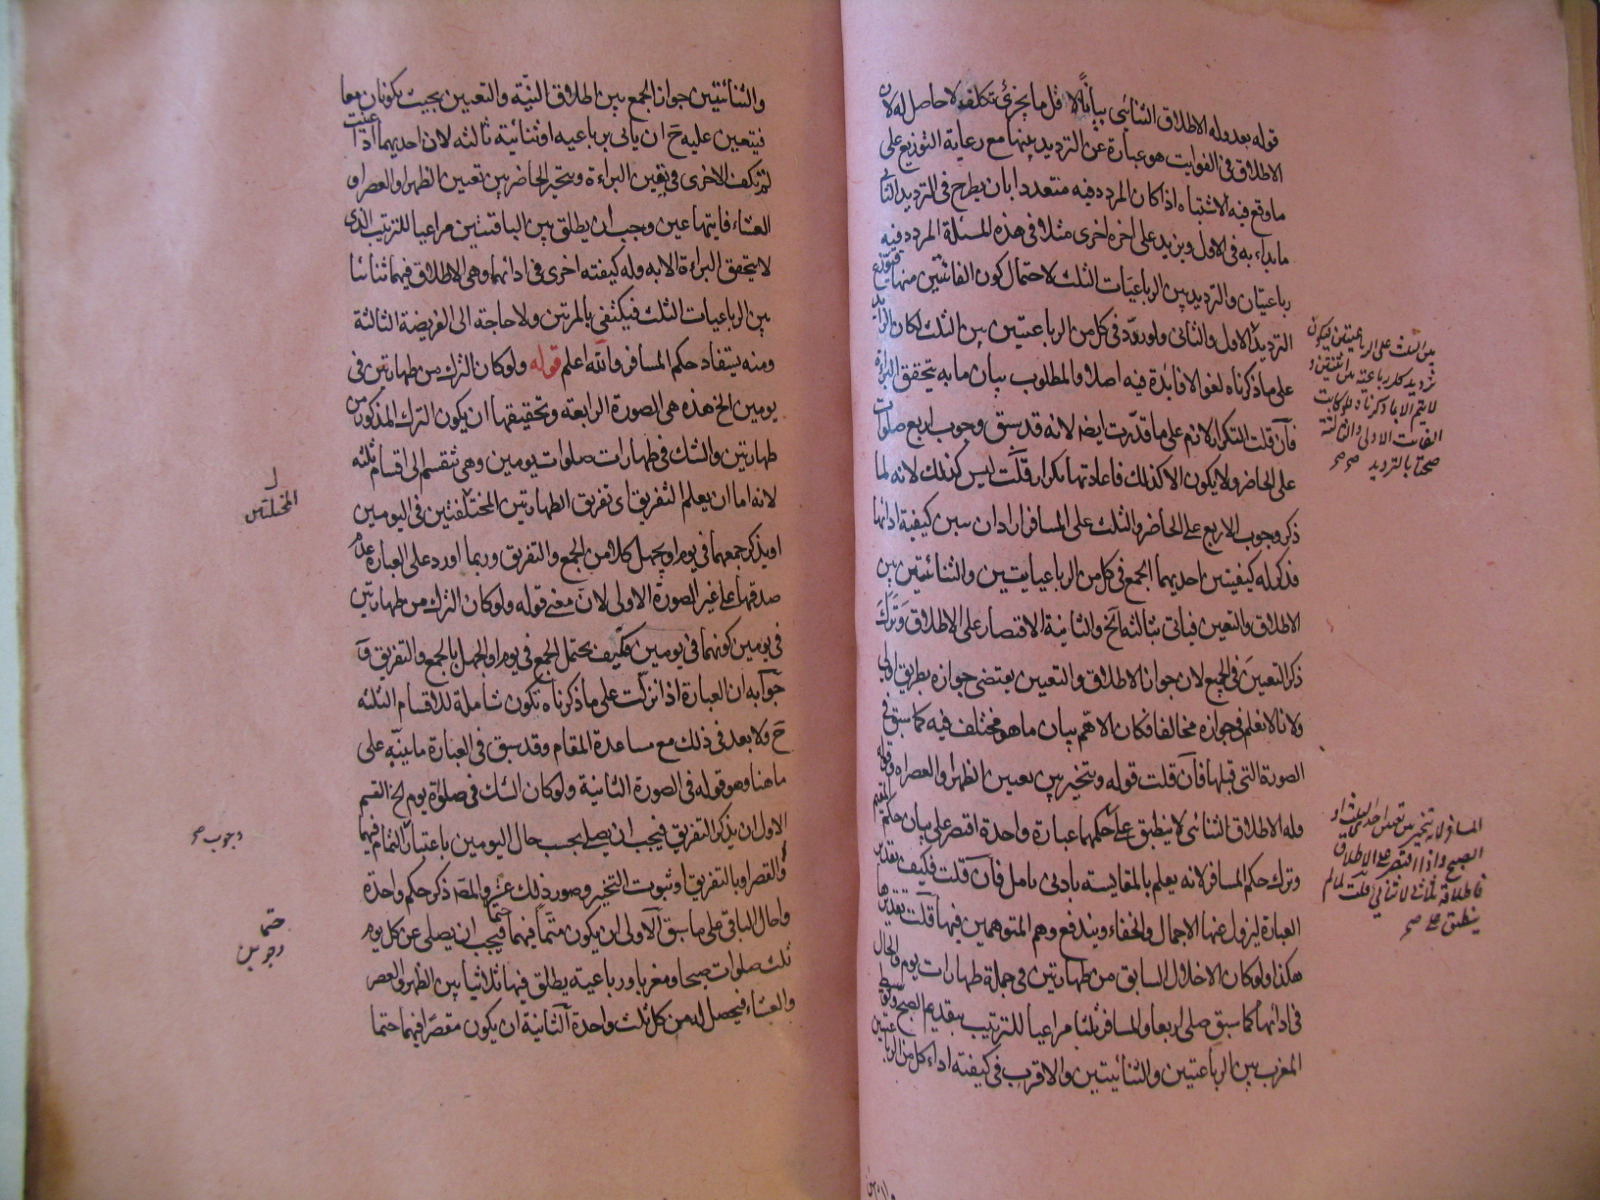 قوله بعد وله الاطلاق الثنائي بيانا لا قل ما يجزئ تكلف لا حاصل له لان
الاطلاق في الفوايت هو عبارة عن الترديد بينها مع رعاية التوزيع على
ما وقع فيه الاشتباه اذا كان المردد فيه متعددا بان يطرح في الترديد الثاني
ما بداء به في الاول ويزيد على اخره اخرى مثلا في هذه المسئلة المردد فيه
رباعيتان والترديد بين الرباعيات الثلث لاحتمال كون الفائتتين منها
الترديد الاول والثاني ولو ردد في كل من الرباعيتين بين الثلث لكان الزايد
على ما ذكرناه لغوا لا فايدة فيه اصلا والمطلوب بيان ما به يتحقق البراءة
فان قلت التكرار لازم على ما قدرت ايضا لانه قد سبق وجوب اربع صلوات
على الحاضر ولا يكون الا كذلك فاعادتها تكرار قلت ليس كذلك لانه لما
ذكر وجوب الاربع على الحاضر والثلث على المسافر اراد ان يبين كيفية ادائها
فذكر له كيفيتين احديهما الجمع في كل من الرباعيتين والثنائيتين بين
الاطلاق والتعيين فياتي بثالثة الخ والثانية الاقتصار على الاطلاق وترك
ذكر التعيين في الجمع لان جواز الاطلاق والتعيين يقتضي جوازه بطريق اولى
ولانا لا نعلم في جوازه مخالفا فكان الاهم بيان ما هو مختلف فيه كما سبق في
الصورة التي قبلها فان قلت قوله ويتخير بين تعيين الظهر او العصر او وقوله
وله الاطلاق الثنائي لا ينطبق على حكمها عبارة واحدة اقتصر على بيان حكم المقيم
وترك حكم المسافر لانه يعلم بالمقايسة بادنى تامل فان قلت فكيف تقدير
العبارة ليزول عنها الاجمال والخفاء ويندفع وهم المتوهمين فيها قلت تقديرها
هكذا ولو كان الاخلال السابق من طهارتين في جملة طهارات يوم والحال
في ادائها كما سبق صلى اربعا والمسافر ثلثا مراعيا للترتيب بتقديم الصبح وتوسيط
المغرب بين الرباعيتين والثنائيتين والاقرب في كيفية اداء كل من الرباعيتين
بين الثلث على الرباعيتين ليكون
ترديد كل رباعية بين اثنتين و
لا يتم الا بما ذكرناه
الفائت الاولى والثالثة
صحتا بالترديد صح
المسافر لا يتخير بين تعيين احدى الثلث او
الصبح واذا اقتصر على الاطلاق
فاطلاقه ثلاثي لا ثنائي قلت لما لم
ينطبق صح
والثنائيتين جواز الجمع بين اطلاق النية والتعيين بحيث يكونان معا
فيتعين عليه ح ان ياتي برباعية او ثنائية ثالثة لان احديهما اذا عينت
لم تكف الاخرى في تيقن البراءة ويتخير الحاضر بين تعيين الظهر او العصر او
العشاء فايتها عين وجب ان يطلق بين الباقيتين مراعيا للترتيب الذي
لا يتحقق البراءة الا به وله كيفية اخرى في ادائها وهي الاطلاق فيهما ثنائيا
بين الرباعيات الثلث فيكتفي بالمرتين ولا حاجة الى الفريضة الثالثة
ومنه يستفاد حكم المسافر والله اعلم قوله ولو كان الترك من طهارتين في
يومين الخ هذه هي الصورة الرابعة وتحقيقها ان يكون الترك المذكور من
طهارتين والشك في طهارات صلوات يومين وهي تنقسم الى اقسام ثلثة
لانه اما ان يعلم التفريق اى تفريق الطهارتين المختلفتين في اليومين
او يذكر جمعهما في يوم او يجهل كلا من الجمع والتفريق وربما اورد على العبارة عدم
صدقها على غير الصورة الاولى لان معنى قوله ولو كان الترك من طهارتين
في يومين كونهما في يومين فكيف يحتمل الجمع في يوم او الجهل بالجمع والتفريق و
جوابه ان العبارة اذا نزلت على ما ذكرناه تكون شاملة للاقسام الثلثة
ح ولا بعد في ذلك مع مساعدة المقام وقد سبق في العبارة ما ينبه على
ما هنا وهو قوله في الصورة الثانية ولو كان الشك في صلوة يوم الخ القسم
الاول ان يذكر التفريق فيجب ان يصلي بحسب حال اليومين باعتبار التمام فيهما
والقصر او بالتفريق او ثبوت التخيير وصور ذلك عشر والمص ذكر حكم واحدة
واحال الباقي على ما سبق الاولى ان يكون متما فيهما حتما فيجب ان يصلي عن كل يوم
ثلث صلوات صبحا ومغربا ورباعية يطلق فيها ثلاثيا بين الظهر والعصر
والعشاء فيحصل له من كل ثلث واحدة الثانية ان يكون مقصرا فيهما حتما
المختلتين
وجوب صح
حتما